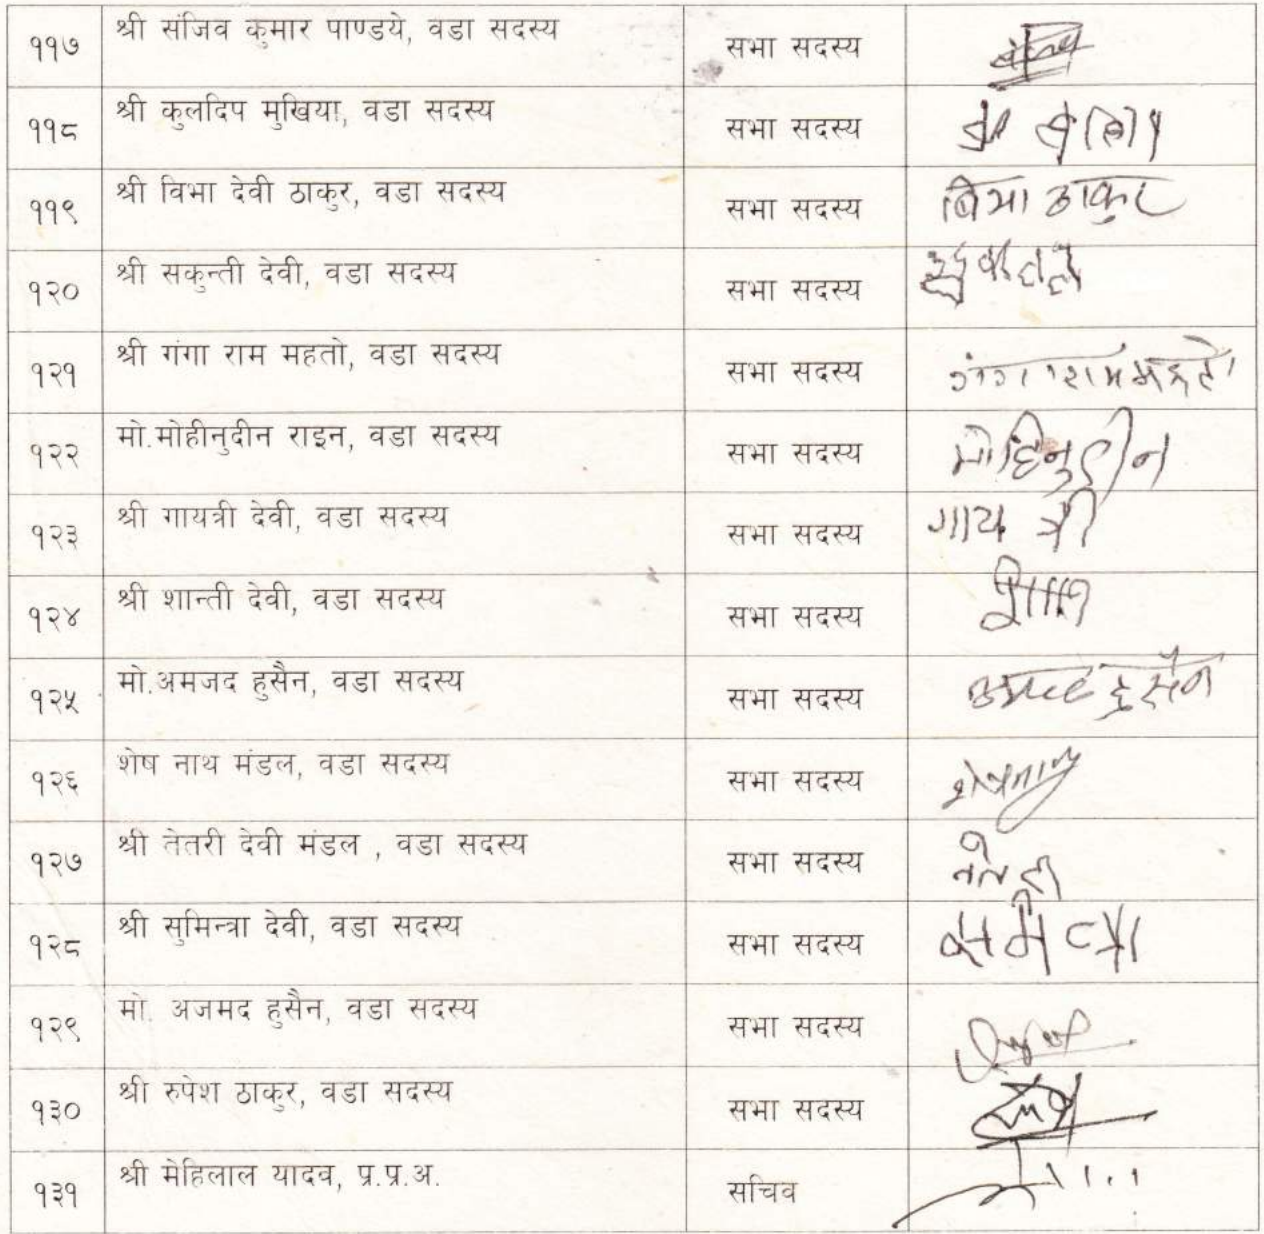 ११७ श्री संजिव कुमार पाण्डये, वडा सदस्य सभा सदस्य
११८ श्री कुलदिप मुखिया, वडा सदस्य सभा सदस्य
११९ श्री विभा देवी ठाकुर, वडा सदस्य सभा सदस्य बिभा ठाकुर
१२० श्री सकुन्ती देवी, वडा सदस्य सभा सदस्य
१२१ श्री गंगा राम महतो, वडा सदस्य सभा सदस्य गंगा राम महतो
१२२ मो.मोहीनुदीन राइन, वडा सदस्य सभा सदस्य मोहिनुद्दीन
१२३ श्री गायत्री देवी, वडा सदस्य सभा सदस्य गायत्री
१२४ श्री शान्ती देवी, वडा सदस्य सभा सदस्य
१२५ मो.अमजद हुसैन, वडा सदस्य सभा सदस्य हुसैन
१२६ शेष नाथ मंडल, वडा सदस्य सभा सदस्य
१२७ श्री तेतरी देवी मंडल , वडा सदस्य सभा सदस्य
१२८ श्री सुमिन्त्रा देवी, वडा सदस्य सभा सदस्य
१२९ मो. अजमद हुसैन, वडा सदस्य सभा सदस्य
१३० श्री रुपेश ठाकुर, वडा सदस्य सभा सदस्य
१३१ श्री मेहिलाल यादव, प्र.प्र.अ. सचिव